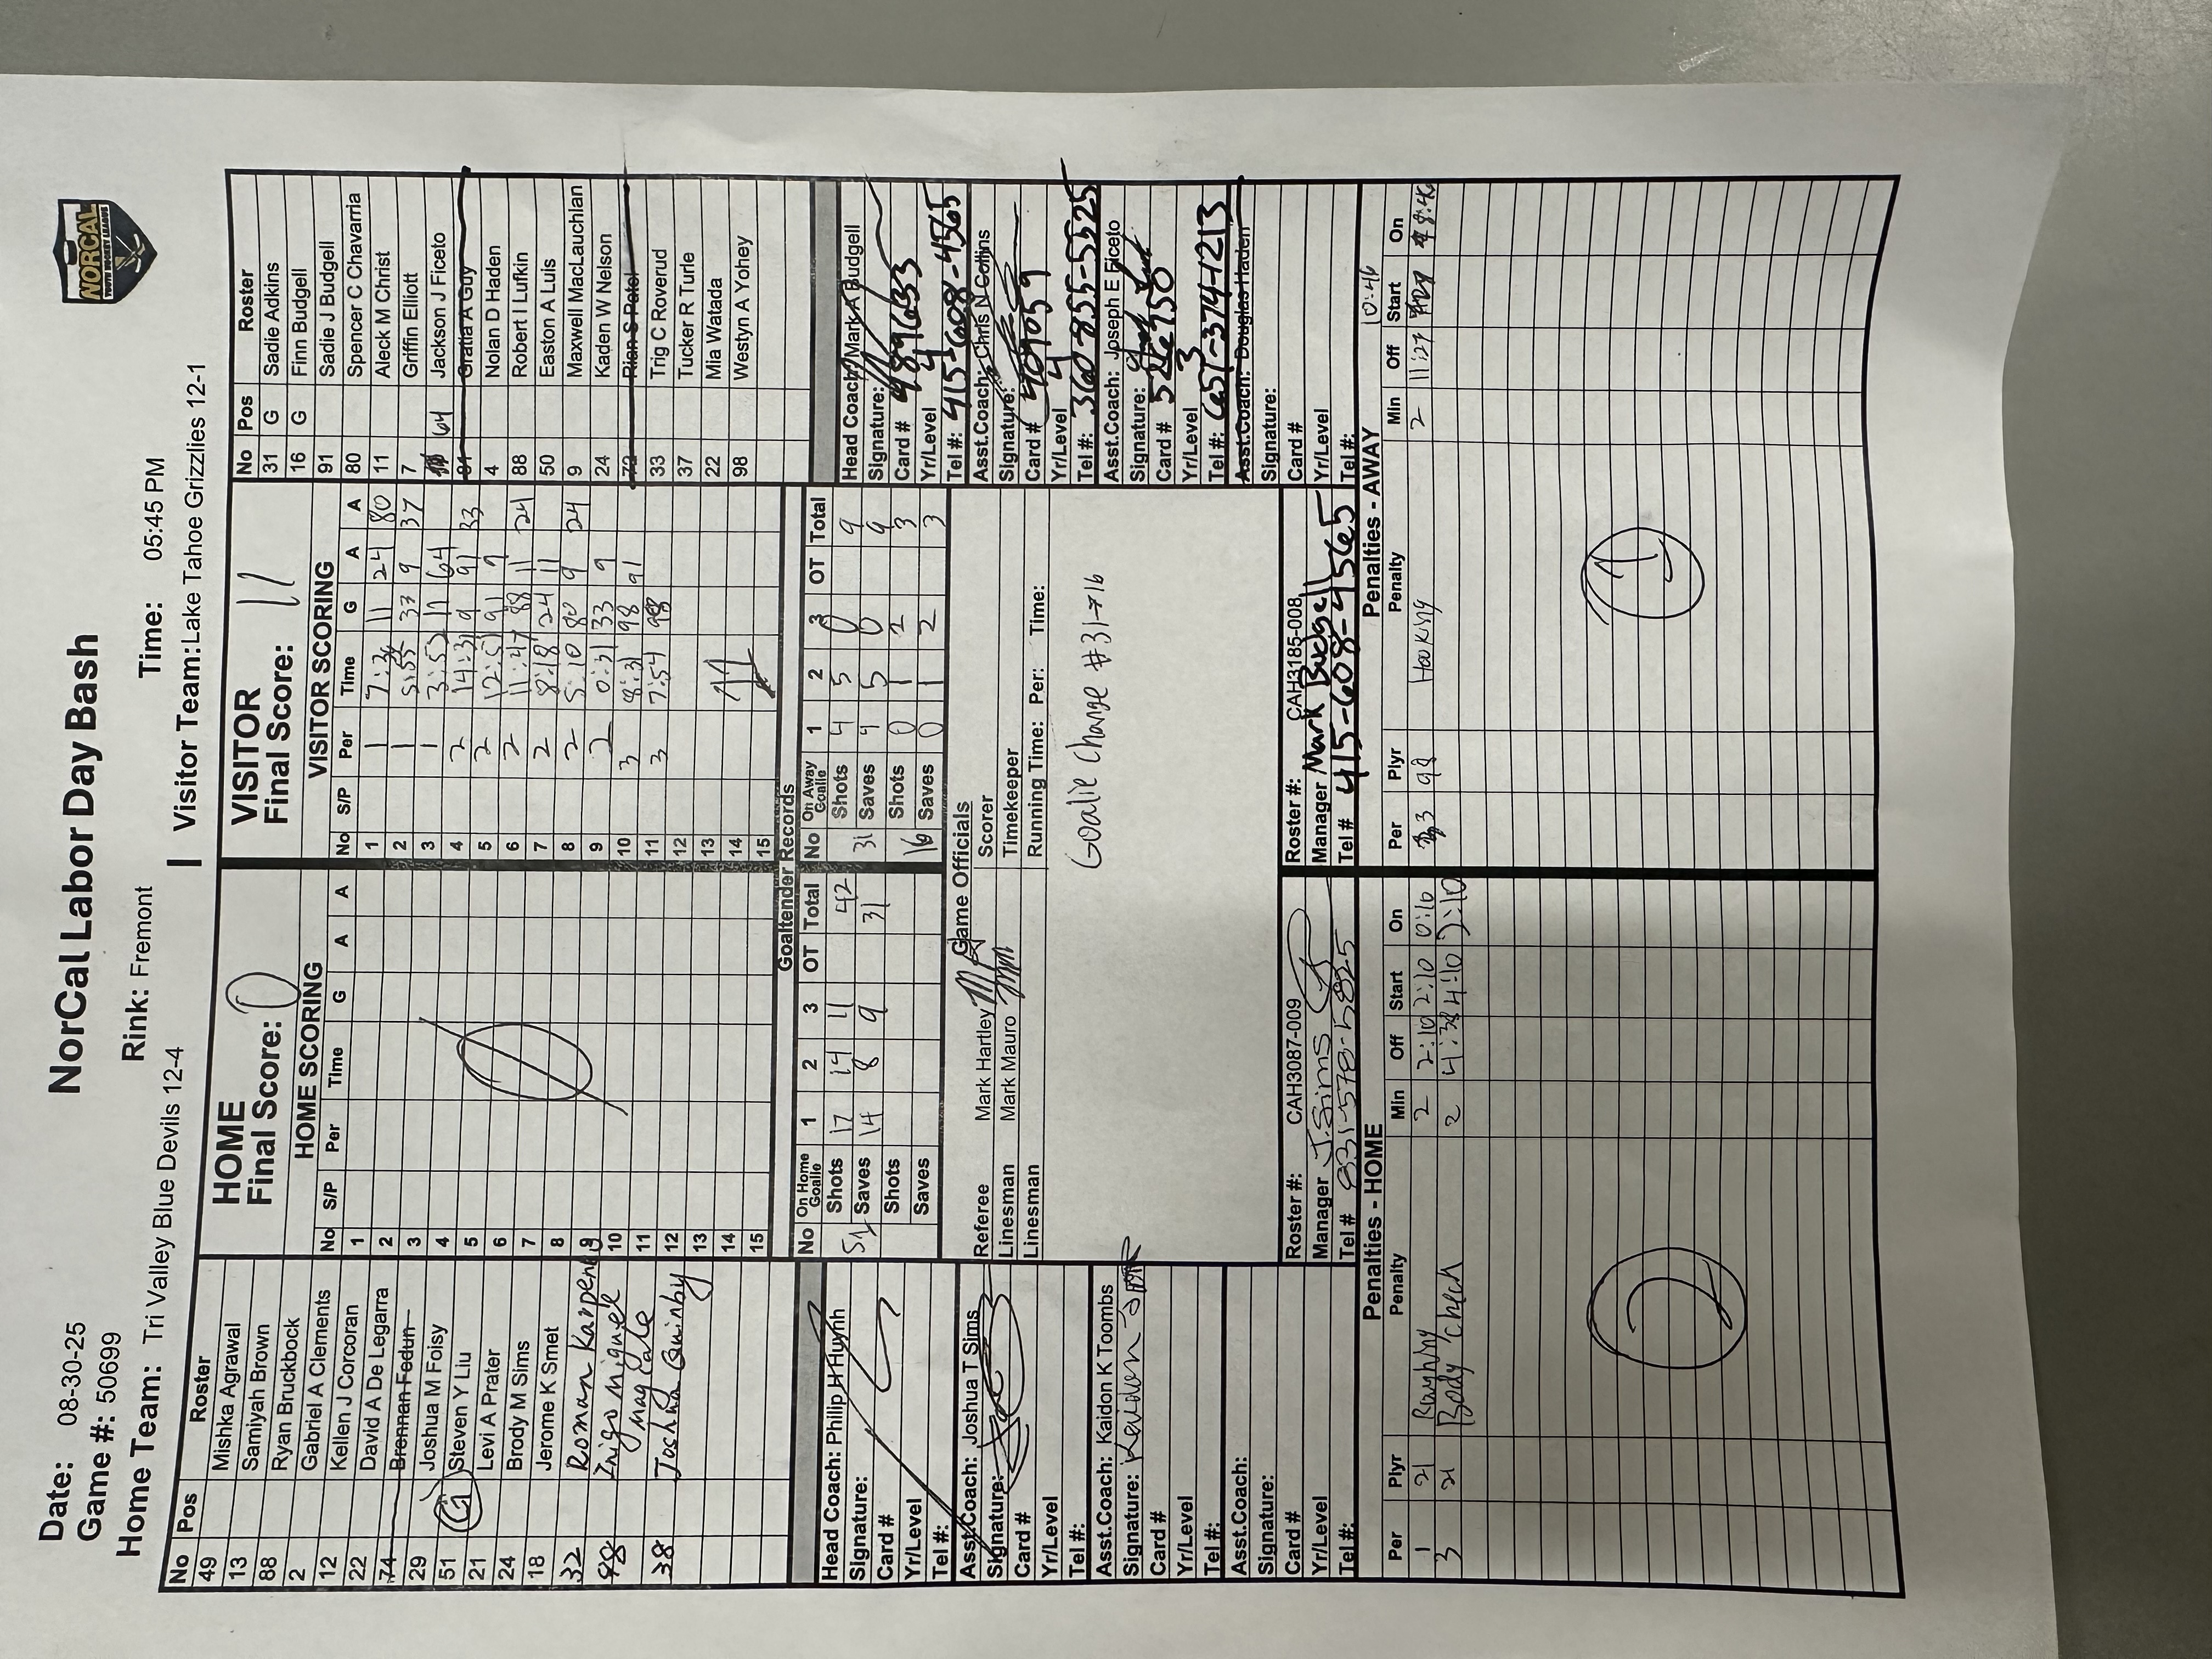 NorCal Labor Day Bash
NORCAL
YOUTH HOCKEY LEAGUE
Date: 08-30-25
Game #: 50699
Rink: Fremont
Time: 05:45 PM
Home Team: Tri Valley Blue Devils 12-4
Visitor Team: Lake Tahoe Grizzlies 12-1
No Pos Roster
49 Mishka Agrawal
13 Samiyah Brown
88 Ryan Bruckbock
2 Gabriel A Clements
12 Kellen J Corcoran
22 David A De Legarra
74 Brennan Fedun
29 Joshua M Foisy
51 G Steven Y Liu
21 Levi A Prater
24 Brody M Sims
18 Jerome K Smet
32 Roman Karpeng
88 Inigo Miguel
Magcale
38 Joshua Quinby
HOME
Final Score: 0
HOME SCORING
No S/P Per Time G A A
1
2
3
4
5
6
7
8
9
10
11
12
13
14
15
VISITOR
Final Score: 11
VISITOR SCORING
No S/P Per Time G A A
1 1 7:36 11 24 80
2 1 5:55 37 9 37
3 1 3:52 11 64
4 2 14:31 9 91 33
5 2 12:51 91 9
6 2 11:47 88 11 24
7 2 8:18 24 11
8 2 5:10 80 9 24
9 2 0:31 33 9
10 3 8:31 98 91
11 3 7:54 98
12
13
14 11
15
No Pos Roster
31 G Sadie Adkins
16 G Finn Budgell
91 Sadie J Budgell
80 Spencer C Chavarria
11 Aleck M Christ
7 Griffin Elliott
64 Jackson J Ficeto
81 Gratia A Guy
4 Nolan D Haden
88 Robert I Lufkin
50 Easton A Luis
9 Maxwell MacLauchlan
24 Kaden W Nelson
72 Rian S Patel
33 Trig C Roverud
37 Tucker R Turle
22 Mia Watada
98 Westyn A Yohey
Goaltender Records
No On Home Goalie 1 2 3 OT Total
51 Shots 17 14 11 42
Saves 14 8 9 31
Shots
Saves
No On Away Goalie 1 2 3 OT Total
31 Shots 4 5 0 9
Saves 4 5 0 9
Shots 0 1 2 3
16 Saves 0 1 2 3
Game Officials
Referee Mark Hartley
Linesman Mark Mauro
Linesman
Scorer
Timekeeper
Running Time: Per: Time:
Goalie Change #31→16
Head Coach: Philip H Huynh
Signature:
Card #
Yr/Level
Tel #:
Asst.Coach: Joshua T Sims
Signature:
Card #
Yr/Level
Tel #:
Asst.Coach: Kaidon K Toombs
Signature: Kaidon
Card #
Yr/Level
Tel #:
Asst.Coach:
Signature:
Card #
Yr/Level
Tel #:
Head Coach: Mark A Budgell
Signature:
Card # 489633
Yr/Level 4
Tel #: 415-608-4565
Asst.Coach: Chris N Collins
Signature:
Card # 409059
Yr/Level 4
Tel #: 360-855-5525
Asst.Coach: Joseph E Ficeto
Signature:
Card # 526750
Yr/Level 3
Tel #: 657-374-1213
Asst.Coach: Douglas Haden
Signature:
Card #
Yr/Level
Tel #:
Roster #: CAH3087-009
Manager J. Sims
Tel # 831-578-5825
Roster #: CAH3185-008
Manager Mark Budgell
Tel # 415-608-4565
Penalties - HOME
Per Plyr Penalty Min Off Start On
1 21 Roughing 2 2:10 2:10 0:10
3 21 Body Check 2 4:38 4:10 2:10
2
Penalties - AWAY
Per Plyr Penalty Min Off Start On
10:46
3 98 Hooking 2 11:27 8:46
1